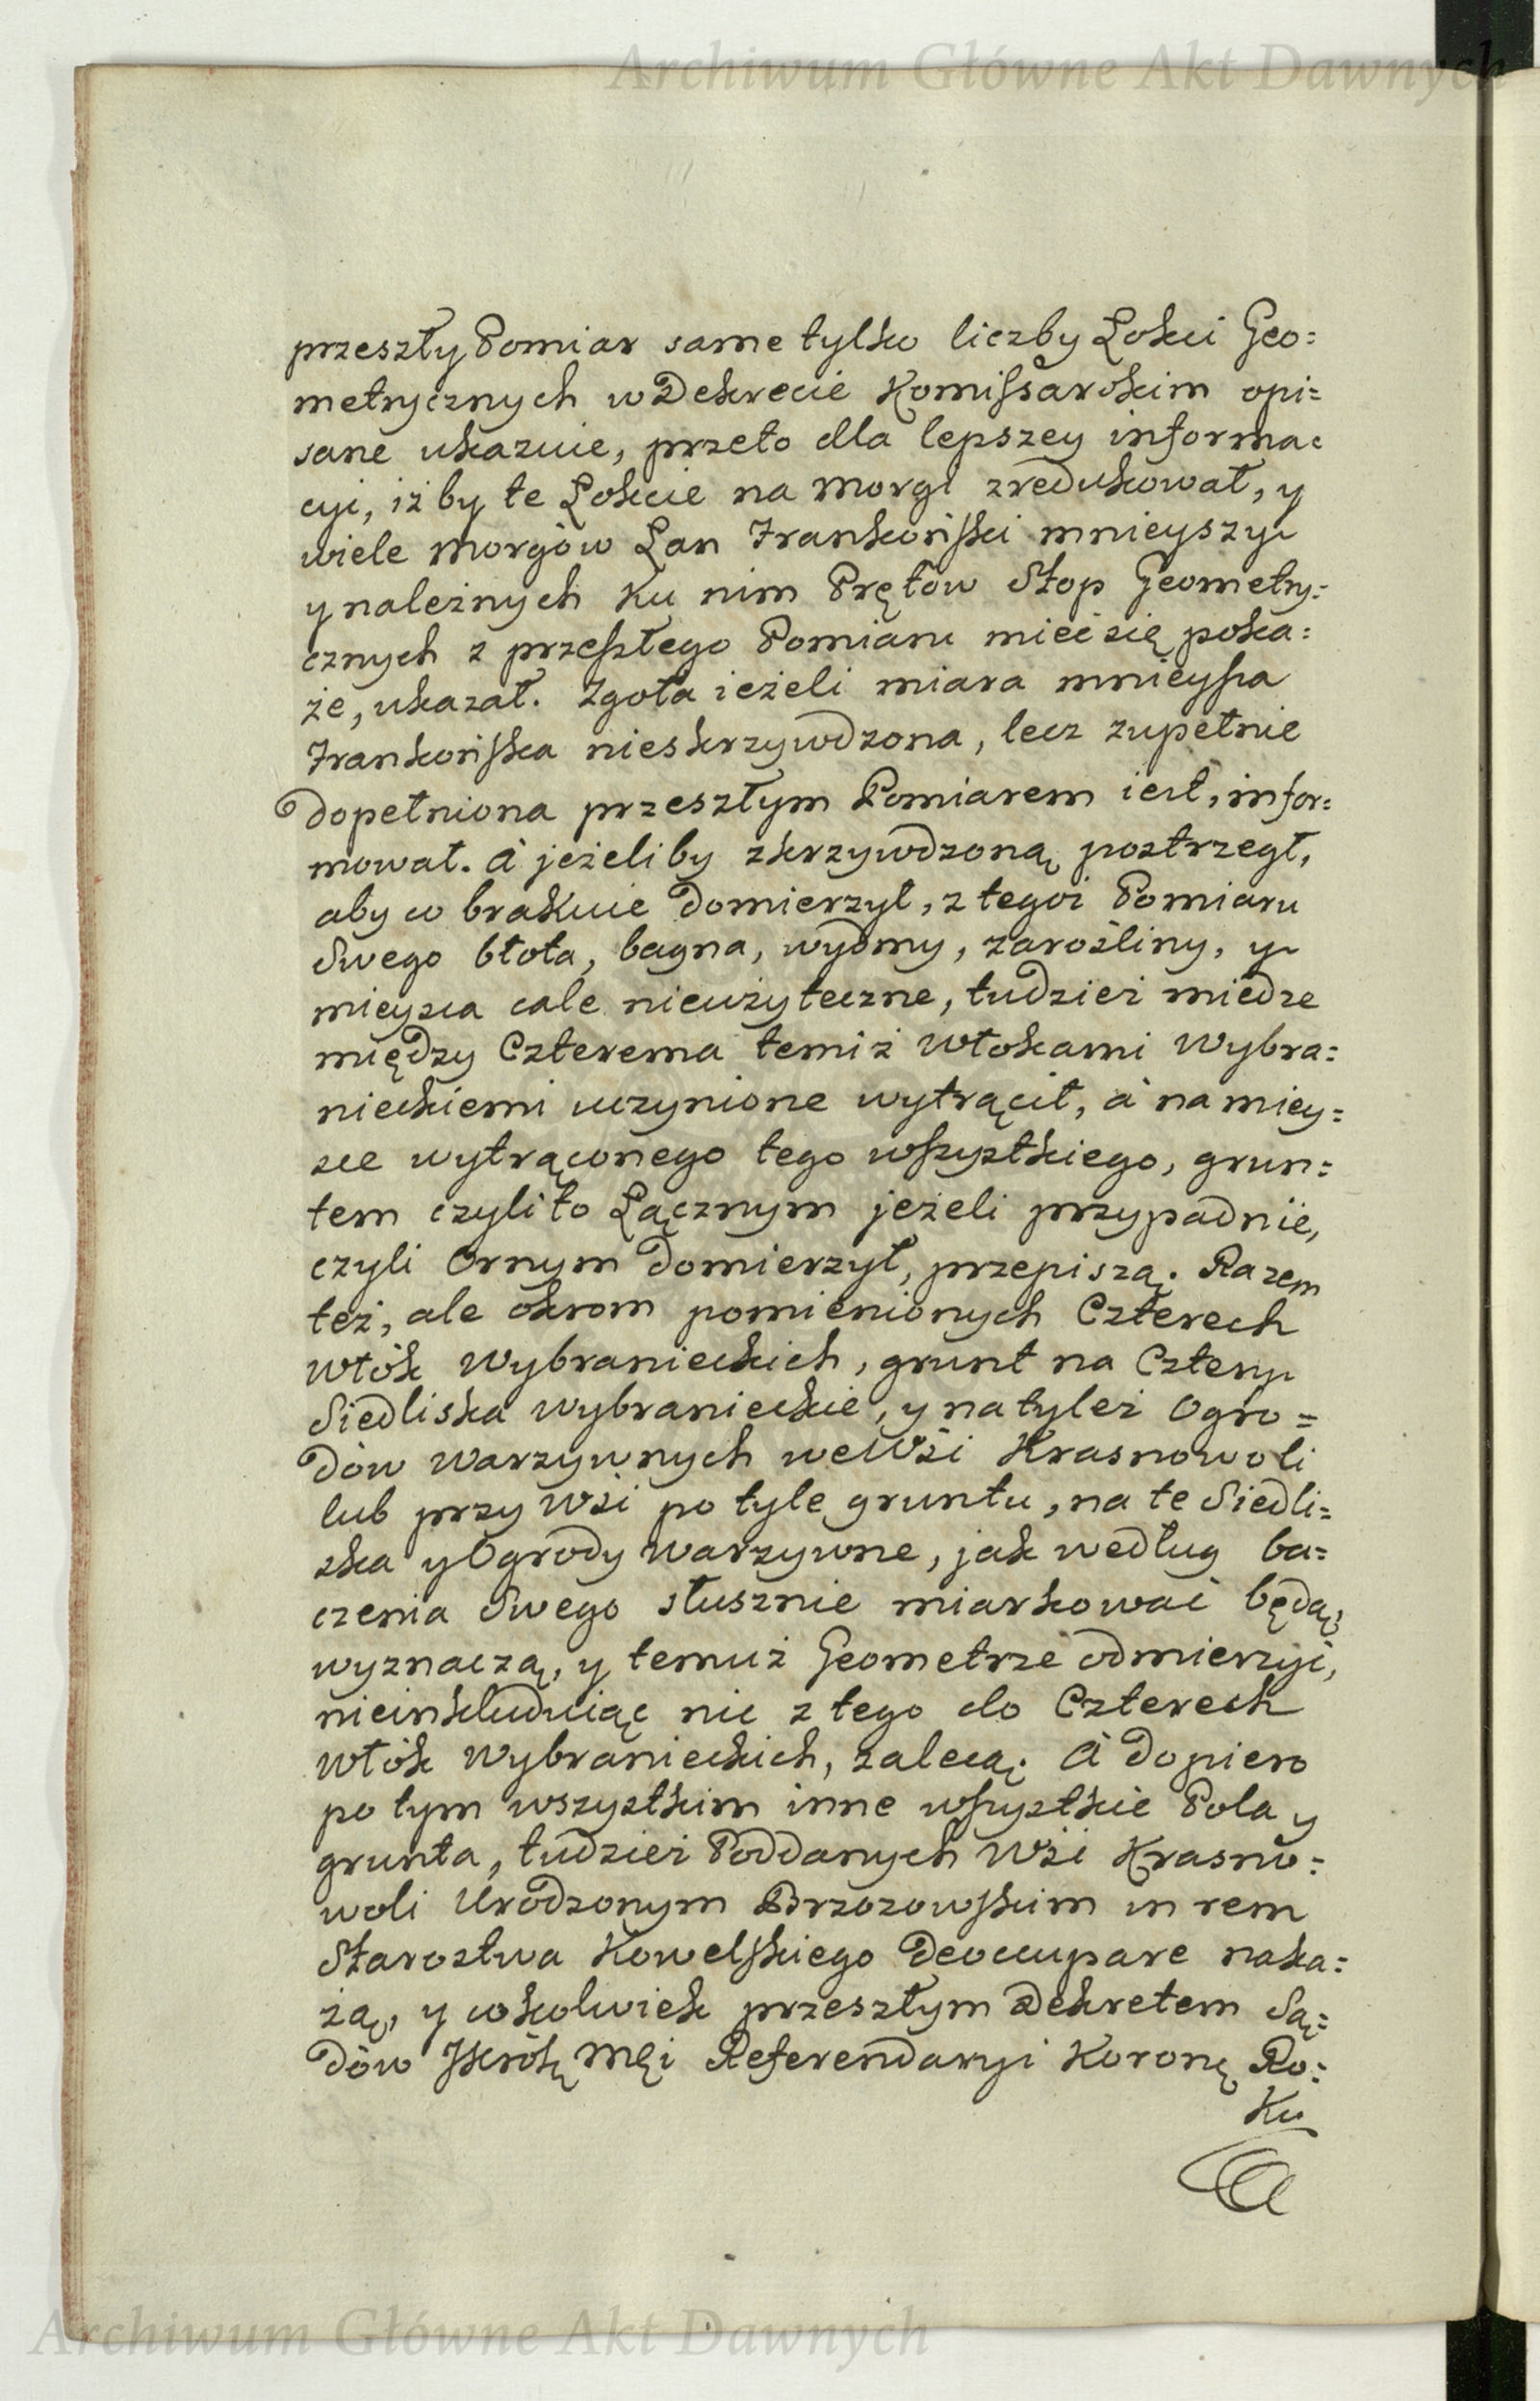 Archiwum Główne Akt Dawnych
przeszły Pomiar same tylko liczby Łokci Geo=
metrycznych w Dekrecie Komissarskim opi=
sane ukazuie, przeto dla lepszey informa=
cyi, iż by te Łokcie na Morgi zredukował, y
wiele Morgów Łan Frankoński mnieyszy
y należnych Ku nim Prętow Stop Geometry=
cznych z przeszłego Pomiaru mieć się poka=
że, ukazał. Zgoła ieżeli miara mnieysza
Frankońska nieskrzywdzona, lecz zupełnie
dopełniona przeszłym Pomiarem iest, infor=
mował. A jeżeli by zkrzywdzoną postrzegł,
aby co brakuie domierzył, z tegoż Pomiaru
Swego błota, bagna, wydmy, zarośliny, y
mieysca cale nieużyteczne, tudzież miedze
między Czterema temiż Włokami Wybra=
nieckiemi uczynione wytrącił, á na miey=
sce wytrąconego tego wszystkiego, grun=
tem czyli to Łącznym jeżeli przypadnie,
czyli Ornym domierzył, przepiszą. Razem
też, ale okrom pomienionych Czterech
Włók Wybranieckich, grunt na Cztery
Siedliska Wybranieckie, y na tyleż Ogro=
dów Warzywnych we Wsi Krasnowoli
lub przy Wsi po tyle gruntu, na te Siedli=
ska y Ogrody Warzywne, jak według ba=
czenia Swego słusznie miarkować będą,
wyznaczą, y temuż Geometrze odmierzyć,
nieinkluduiąc nic z tego do Czterech
Włók Wybranieckich, zalecą. A dopiero
po tym wszystkim inne wszystkie Pola y
grunta, tudzież Poddanych Wsi Krasno=
woli Urodzonym Brzozowskim in rem
Starostwa Kowelskiego deoccupare naka=
żą, y cokolwiek przeszłym Dekretem Są=
dów JKróĺ Mci Referendaryi Koronney Ro=
Ku
Archiwum Główne Akt Dawnych